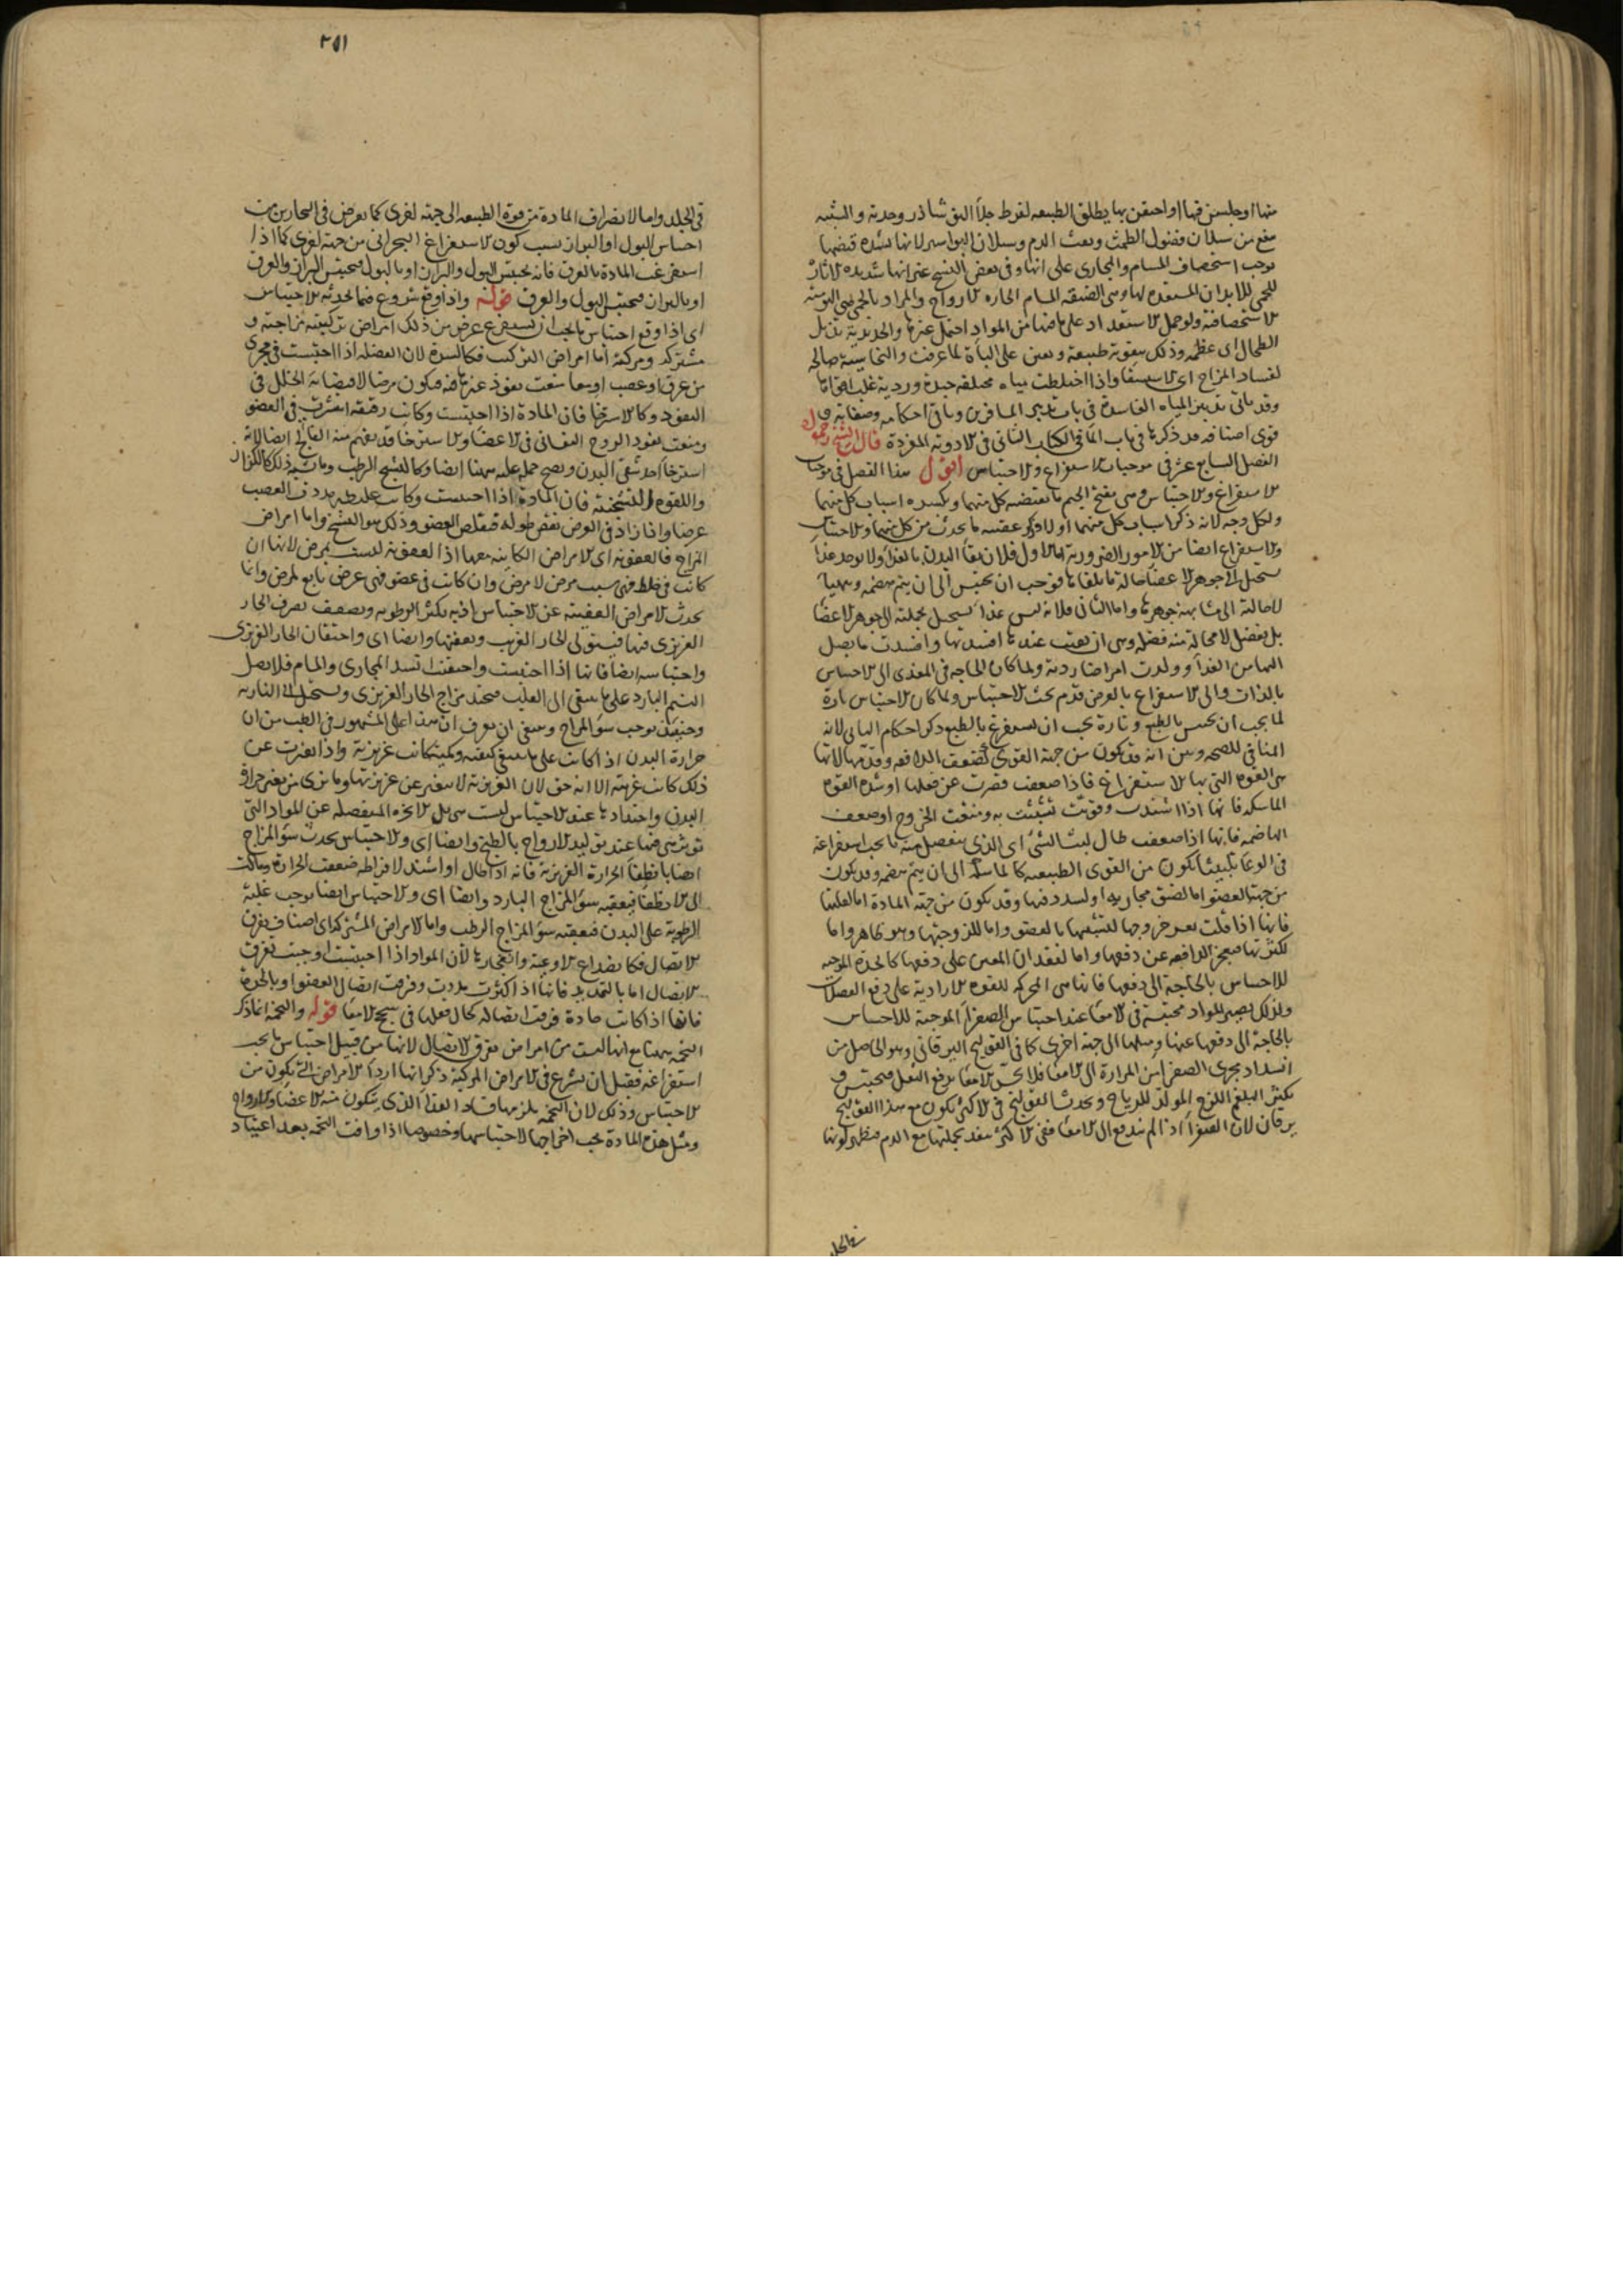 منها او جلس فيها او احتقن بها يطلق الطبيعه لفرط جلاء البورق
منع من سيلان فضول الطمث ونفث الدم وسيلان البواسير لانها لشده قبضها
توجب استحصاف المسام والمجارى على انها وفى بعض النسخ غير انها شديده الاثارة
للحمى للابدان المستعده لها وهى الضيقه المسام الحاره الارواح والمراد بالحمى اليوميه
الاستحصافية ولو حمل الاستعداد على ما فيها من المواد احتمل غيرها والحديدية تذبل
الطحال اى عظمه وذلك بتقوية طبيعية وتعين على الباه لما عرفت والنحاسية صالحه
لفساد المزاج اى الاستسقا واذا اختلطت مياه مختلفه جيدة وردية غلب اقواها
وقد ياتى تدبير المياه الفاسدة فى باب تدبير المسافرين وباقى احكامه وصفاته و
قوى اصنافه قد ذكرها فى باب الما فى الكتاب الثانى فى الادوية المفردة قال الشيخ رحمه الله
الفصل السابع عشر فى موجبات الاستفراغ والاحتباس اقول هذا الفصل فى موجبات
الاستفراغ والاحتباس وهى بفتح الجيم ما يقتضيه كل منهما وبكسره اسباب كل منهما
ولكل وجه لانه ذكر اسباب كل منهما اولا وذكر عقيبه ما يحدث من كل منهما والاحتباس
والاستفراغ ايضا من الامور الضرورية اما الاول فلان بقاء البدن بالغذا ولا يوجد غذا
يستحيل الى جوهر الاعضا حالة ما يلقاها فوجب ان يحتبس الى ان يتم هضمه ويتهيا
لاحالته الى مشابهة جوهرها واما الثانى فلانه ليس غذا يستحيل بجملته الى جوهر الاعضا
بل يفضل لا محالة منه فضله وهى ان بقيت عندها افسدتها وافسدت ما يصل
اليها من الغذا وولدت امراضا ردية ولما كان الحاجه فى المغذى الى الاحتباس
بالذات والى الاستفراغ بالعرض قدم بحث الاحتباس ولما كان الاحتباس تارة
لما يجب ان يحتبس بالطبع وتارة يجب ان يستفرغ بالطبع ذكر احكام الثانى لانه
المنافى للصحه وبين انه قد يكون من جهة القوى كضعف الدافعه وقدمها لانها
هى القوه التى بها الاستفراغ فاذا ضعفت قصرت عن فعلها او شده القوه
الماسكه فانها اذا اشتدت وقويت تشبثت به ومنعت الخروج او ضعف
الهاضمه فانها اذا ضعفت طال لبث الشئ اى الذى ينفصل منه ما يجب استفراغه
فى الوعا تلبيثا يكون من القوى الطبيعيه كالماسكه الى ان يتم هضمه وقد يكون
من جهة العضو اما لضيق مجاريه او لسدد فيها وقد يكون من جهة المادة اما لغلظها
فانها اذا غلظت يعسر خروجها لتشبثها بالعضو واما للزوجتها وهو ظاهر واما
لكثرتها فيعجز الدافعه عن دفعها واما لفقدان المعين على دفعها كالحدة الموجبه
للاحساس بالحاجة الى دفعها فانها هى المحركه للقوه الارادية على دفع الفضلات
ولذلك يصير المواد محتبسة فى الامعا عند احتباس الصفرا الموجبة للاحساس
بالحاجة الى دفعها عنها وميلها الى جهة اخرى كما فى القولنج اليرقانى وهو الحاصل من
انسداد مجرى الصفرا من المرارة الى الامعا فلا يحس الامعا بدفع الثفل فيحتبس و
يكثر البلغم اللزج المولد للرياح ويحدث القولنج وفى الاكثر يكون مع هذا القولنج
يرقان لان الصفرا اذا لم يندفع الى الامعا ففى الاكثر ينفذ بجملتها مع الدم فيظهر لونها
فى الجلد
فى الجلد واما لانصراف المادة من قوة الطبيعه الى جهة اخرى كما يعرض فى البحارين من
احتباس البول او البراز بسبب كون الاستفراغ البحرانى من جهة اخرى كما اذا
استفرغت المادة بالعرق فانه يحتبس البول والبراز او بالبول فيحتبس البراز والعرق
او بالبراز فيحتبس البول والعرق قوله واذا وقع شروع فيما يحدثه الاحتباس
اى اذا وقع احتباس ما يجب ان يستفرغ عرض من ذلك امراض تركيبية مزاجية و
مشتركه ومركبة اما امراض التركيب فكالسدة لان الفضله اذا احتبست فى مجرى
من عرق او عصب او معا منعت نفوذ غيرها فيه فيكون مرضا لاقتضائه الخلل فى
النفوذ وكالاسترخا فان المادة اذا احتبست وكانت رقيقه انتشرت فى العضو
ومنعت نفوذ الروح النفسانى فى الاعضا والاسترخا قد يفهم منه الفالج ايضا لانه
استرخا احد شقى البدن ويصح حمله عليه ههنا ايضا وكالتشنج الرطب وما يشبه ذلك كالكزاز
واللقوه التشنجية فان المادة اذا احتبست وكانت غليظه مددت العصب
عرضا واذا زاد فى العرض نقص طوله فيتقلص العضو وذلك هو التشنج واما امراض
المزاج فالعفونة اى الامراض الكاينه معها اذ العفونة ليست بمرض لانها ان
كانت فى خلط فهى سبب مرض لا مرض وان كانت فى عضو فهى عرض تابع لمرض وانما
يحدث الامراض العفنية عن الاحتباس اذ به يكثر الرطوبه ويضعف تصرف الحار
الغريزى فيها فيستولى الحار الغريب ويعفنها وايضا اى واحتقان الحار الغريزى
واحتباسه ايضا فانها اذا احتبست واحتقنت انسد المجارى والمسام فلا يصل
النسيم البارد على ما ينبغى الى القلب فيحتد مزاج الحار الغريزى ويستحيل الى الناريه
وحينئذ يوجب سو المزاج وينبغى ان يعرف ان هذا على المشهور فى الطب من ان
حرارة البدن اذا كانت على ما ينبغى كيفيه وكمية كانت غريزية واذا تغيرت عن
ذلك كانت غريبة الا انه حق لان الغريزية لا يتغير عن غريزيتها وما يرى من تغير حرارة
البدن واحتدادها عند الاحتباس ليست هى بل الابخره المنفصله عن المواد التى
تورثى فيها عند توليد الارواح بالطبخ وايضا اى والاحتباس يحدث سو المزاج
ايضا بانطفا الحرارة الغريزية فانه اذا طال او اشتد لافراطه ضعفت الحرارة ومالت
الى الانطفا فيعقبه سو المزاج البارد وايضا اى والاحتباس ايضا يوجب غلبة
الرطوبة على البدن فيعقبه سو المزاج الرطب واما الامراض المشتركه اى اصناف تفرق
الاتصال فكانصداع الاوعية وانفجارها لان المواد اذا احتبست اوجبت تفرق
الاتصال اما بالتمديد فانها اذا كثرت مددت وفرقت اتصال العضو او بالحدة
فانها اذا كانت حادة فرقت اتصاله كحال فعلها فى سحج الامعا قوله والتخمه انما ذكر
التخمه ههنا مع انها ليست من امراض تفرق الاتصال لانها من قبيل احتباس ما يجب
استفراغه فقبل ان يشرع فى الامراض المركبة ذكر انها اردا الامراض التى يكون من
الاحتباس وذلك لان التخمه يلزمها فساد الغذا الذى يتكون منه الاعضا والارواح
ومثل هذه المادة يجب اخراجها لا احتباسها وخصوصا اذا وافت التخمه بعد اعتياد
٢٥١